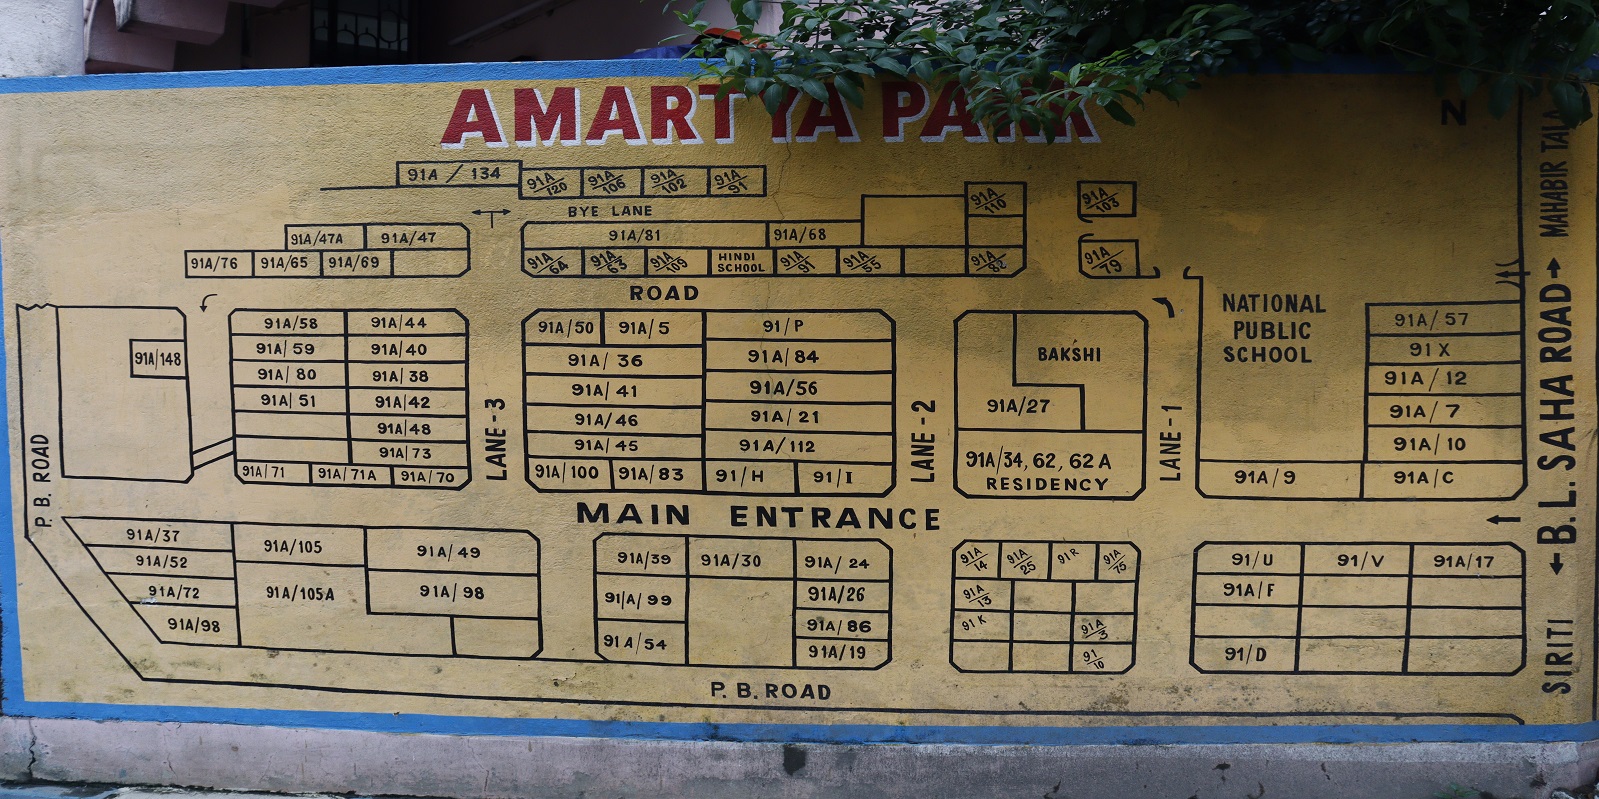 AMARTYA PARK
N
91A / 134
91A/120 91A/106 91A/102 91A/91
91A/110
91A/103
BYE LANE
91A/47A 91A/47
91A/81 91A/68
91A/76 91A/65 91A/69
91A/64 91A/63 91A/109 HINDI SCHOOL 91A/91 91A/55 91A/82
91A/79
ROAD
91A/148
91A/58 91A/44
91A/59 91A/40
91A/80 91A/38
91A/51 91A/42
91A/48
91A/73
91A/71 91A/71A 91A/70
LANE-3
91A/50 91A/5 91/P
91A/36 91A/84
91A/41 91A/56
91A/46 91A/21
91A/45 91A/112
91A/100 91A/83 91/H 91/I
LANE-2
BAKSHI
91A/27
91A/34, 62, 62A
RESIDENCY
LANE-1
NATIONAL
PUBLIC
SCHOOL
91A/57
91X
91A/12
91A/7
91A/10
91A/9 91A/C
MAIN ENTRANCE
P. B. ROAD
91A/37
91A/52
91A/72
91A/98
91A/105
91A/105A
91A/49
91A/98
91A/39 91A/30 91A/24
91/A/99 91A/26
91A/54 91A/86
91A/19
91A/14 91A/25 91R 91A/75
91A/13
91K 91A/3
91/10
91/U 91/V 91A/17
91A/F
91/D
P. B. ROAD
SIRITI ← B. L. SAHA ROAD → MAHABIR TALA